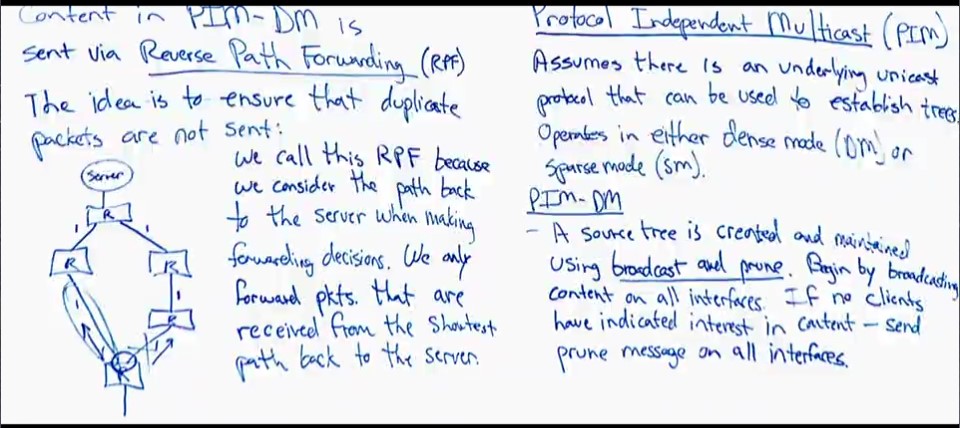 Content in PIM-DM is
sent via Reverse Path Forwarding (RPF)
The idea is to ensure that duplicate
packets are not sent:
Server
R
1
1
R
R
1
1
R
R
1
We call this RPF because
we consider the path back
to the server when making
forwarding decisions. We only
forward pkts. that are
received from the shortest
path back to the server.
Protocol Independent Multicast (PIM)
Assumes there is an underlying unicast
protocol that can be used to establish trees.
Operates in either dense mode (DM) or
Sparse mode (SM).
PIM-DM
- A source tree is created and maintained
using broadcast and prune. Begin by broadcasting
content on all interfaces. If no clients
have indicated interest in content - send
prune message on all interfaces.